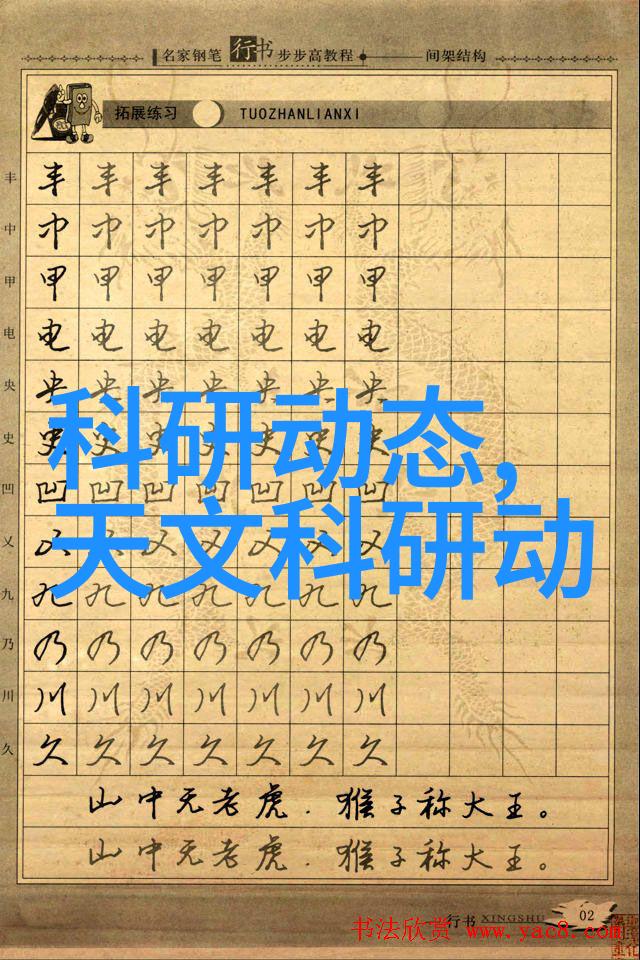 名家钢笔 行书 步步高教程 间架结构
拓展练习 TUOZHANLIANXI
丰 丰 丰 丰 丰 丰 丰 丰
中 中 中 中 中 中 中 中
甲 甲 甲 甲 甲 甲 甲 甲
电 电 电 电 电 电 电 电
央 央 央 央 央 央 央 央
史 史 史 史 史 史 史 史
科研动态，
凹 凹 凹 凹 凹 凹 凹 凹
义 义 义 义 义 义 义 义
天文科研动
九 九 九 九 九 九 九 九
乃 乃 乃 乃 乃 乃 乃 乃
川 川 川 川 川 川 川 川
久 久 久 久 久 久 久 久
山中无老虎．猴子称大王。
山中无老虎．猴子称大王。
行书 XINGSHU 02
书法欣赏 www.yac8.com